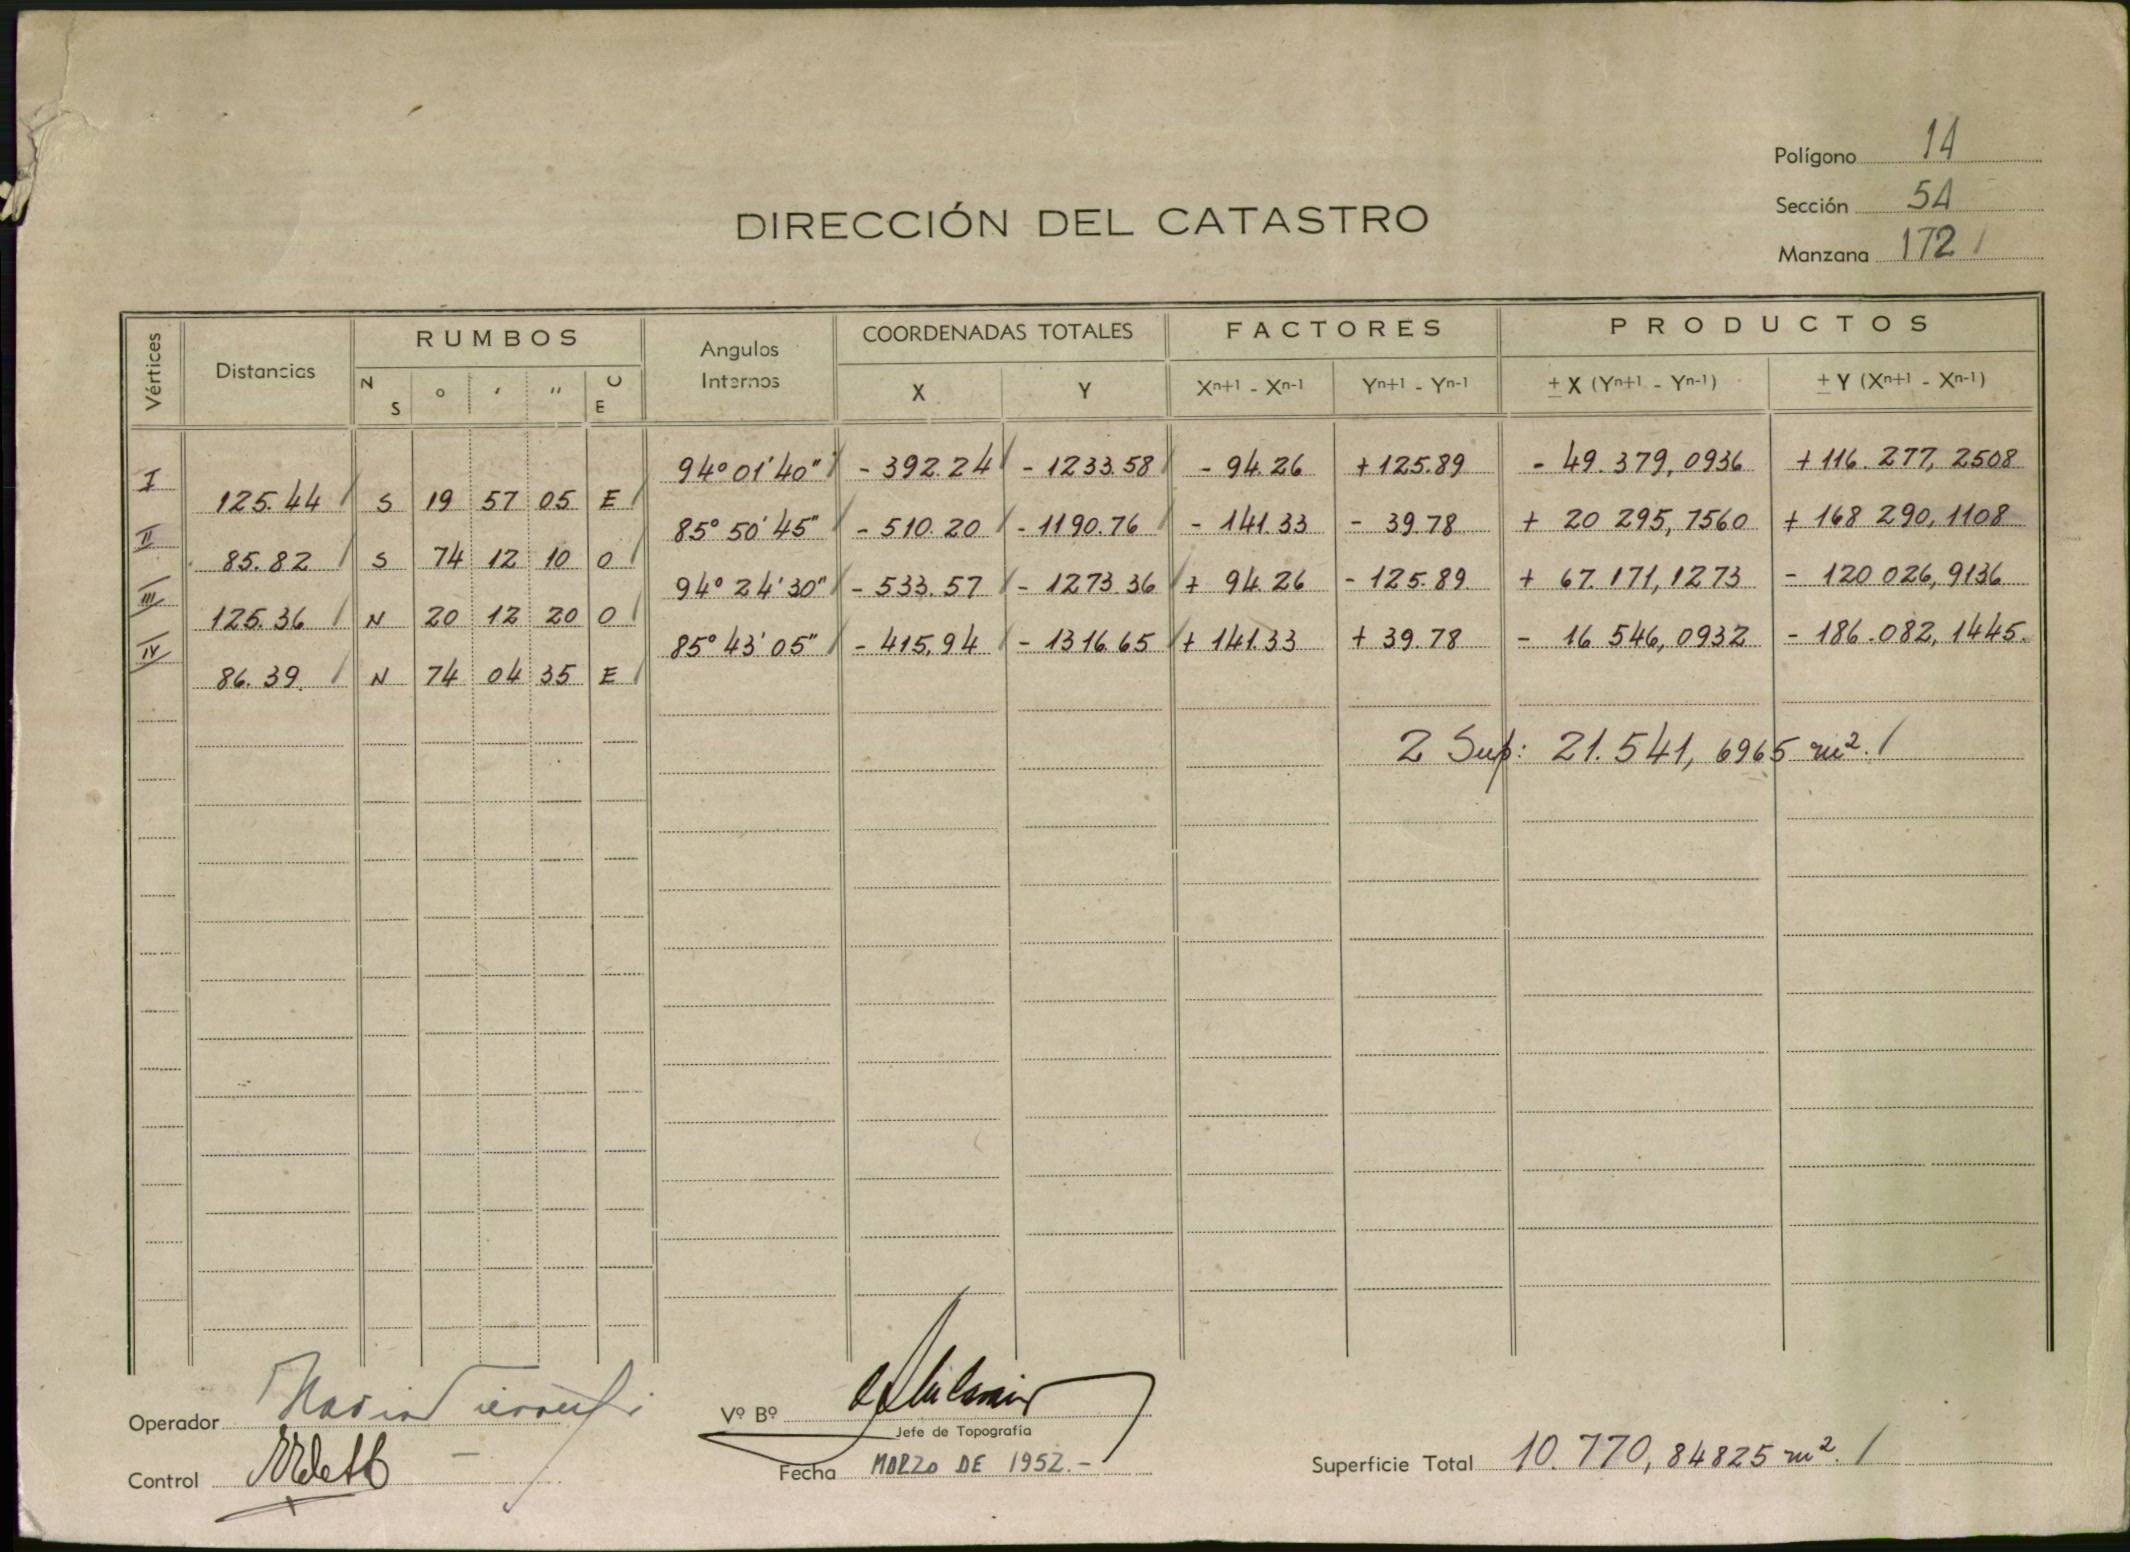 Polígono 14
Sección 5A
Manzana 172
DIRECCIÓN DEL CATASTRO
Vértices Distancias RUMBOS Angulos Internos COORDENADAS TOTALES FACTORES PRODUCTOS
N S ° ' " O E X Y Xn+1 - Xn-1 Yn+1 - Yn-1 ± X (Yn+1 - Yn-1) ± Y (Xn+1 - Xn-1)
I 94° 01' 40" - 392.24 - 1233.58 - 94.26 + 125.89 - 49.379,0936 + 116.277,2508
125.44 S 19 57 05 E
II 85° 50' 45" - 510.20 - 1190.76 - 141.33 - 39.78 + 20 295,7560 + 168 290,1108
85.82 S 74 12 10 O
III 94° 24' 30" - 533.57 - 1273.36 + 94.26 - 125.89 + 67.171,1273 - 120 026,9136
125.36 N 20 12 20 O
IV 85° 43' 05" - 415,94 - 1316.65 + 141.33 + 39.78 - 16 546,0932 - 186.082,1445.
86.39. N 74 04 35 E
2 Sup: 21.541,6965 m².
Operador
Vº Bº
Jefe de Topografía
Control
Fecha MARZO DE 1952.-
Superficie Total 10.770,84825 m².